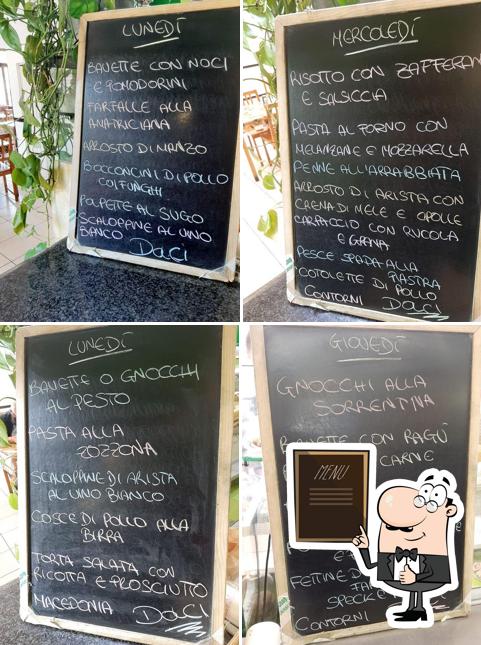 LUNEDÌ
BAVETTE CON NOCI
E POMODORINI
FARFALLE ALLA
AMATRICIANA
ARROSTO DI MANZO
BOCCONCINI DI POLLO
CON FUNGHI
POLPETTE AL SUGO
SCALOPPINE AL VINO
BIANCO
Daci
MERCOLEDÌ
RISOTTO CON ZAFFERAN
E SALSICCIA
PASTA AL FORNO CON
MELANZANE E MOZZARELLA
PENNE ALL'ARRABBIATA
ARROSTO DI ARISTA CON
CREMA DI MELE E CIPOLLE
CARPACCIO CON RUCOLA
E GRANA
PESCE SPADA ALLA
PIASTRA
COTOLETTE DI POLLO
CONTORNI Daci
LUNEDÌ
BAVETTE O GNOCCHI
AL PESTO
PASTA ALLA
ZOZZONA
SCALOPPINE DI ARISTA
AL VINO BIANCO
COSCE DI POLLO ALLA
BIRRA
TORTA SALATA CON
RICOTTA E PROSCIUTTO
MACEDONIA Daci
GIOVEDÌ
GNOCCHI ALLA
SORRENTINA
BAVETTE CON RAGÙ
CARNE
MENU
FETTINE D
SPECK E
CONTORNI